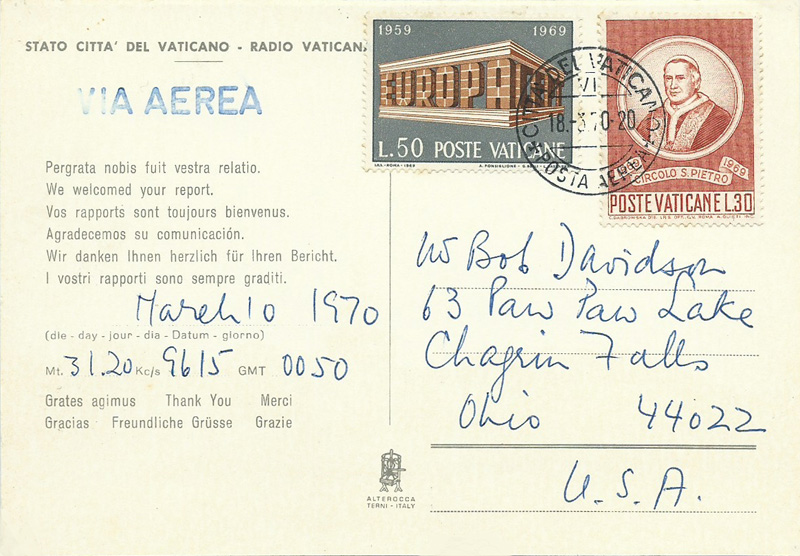 STATO CITTA' DEL VATICANO - RADIO VATICANA
VIA AEREA
1959 1969
EUROPA
L.50 POSTE VATICANE
CITTA DEL VATICANO
18.-3.70-20
POSTA AEREA
1969
CIRCOLO S. PIETRO
POSTE VATICANE L.30
Pergrata nobis fuit vestra relatio.
We welcomed your report.
Vos rapports sont toujours bienvenus.
Agradecemos su comunicación.
Wir danken Ihnen herzlich für Ihren Bericht.
I vostri rapporti sono sempre graditi.
March 10 1970
(die - day - jour - dia - Datum - giorno)
Mt. 31.20 Kc/s 9615 GMT 0050
Grates agimus Thank You Merci
Gracias Freundliche Grüsse Grazie
Mr Bob Davidson
63 Paw Paw Lake
Chagrin Falls
Ohio 44022
U.S.A.
ALTEROCCA
TERNI - ITALY